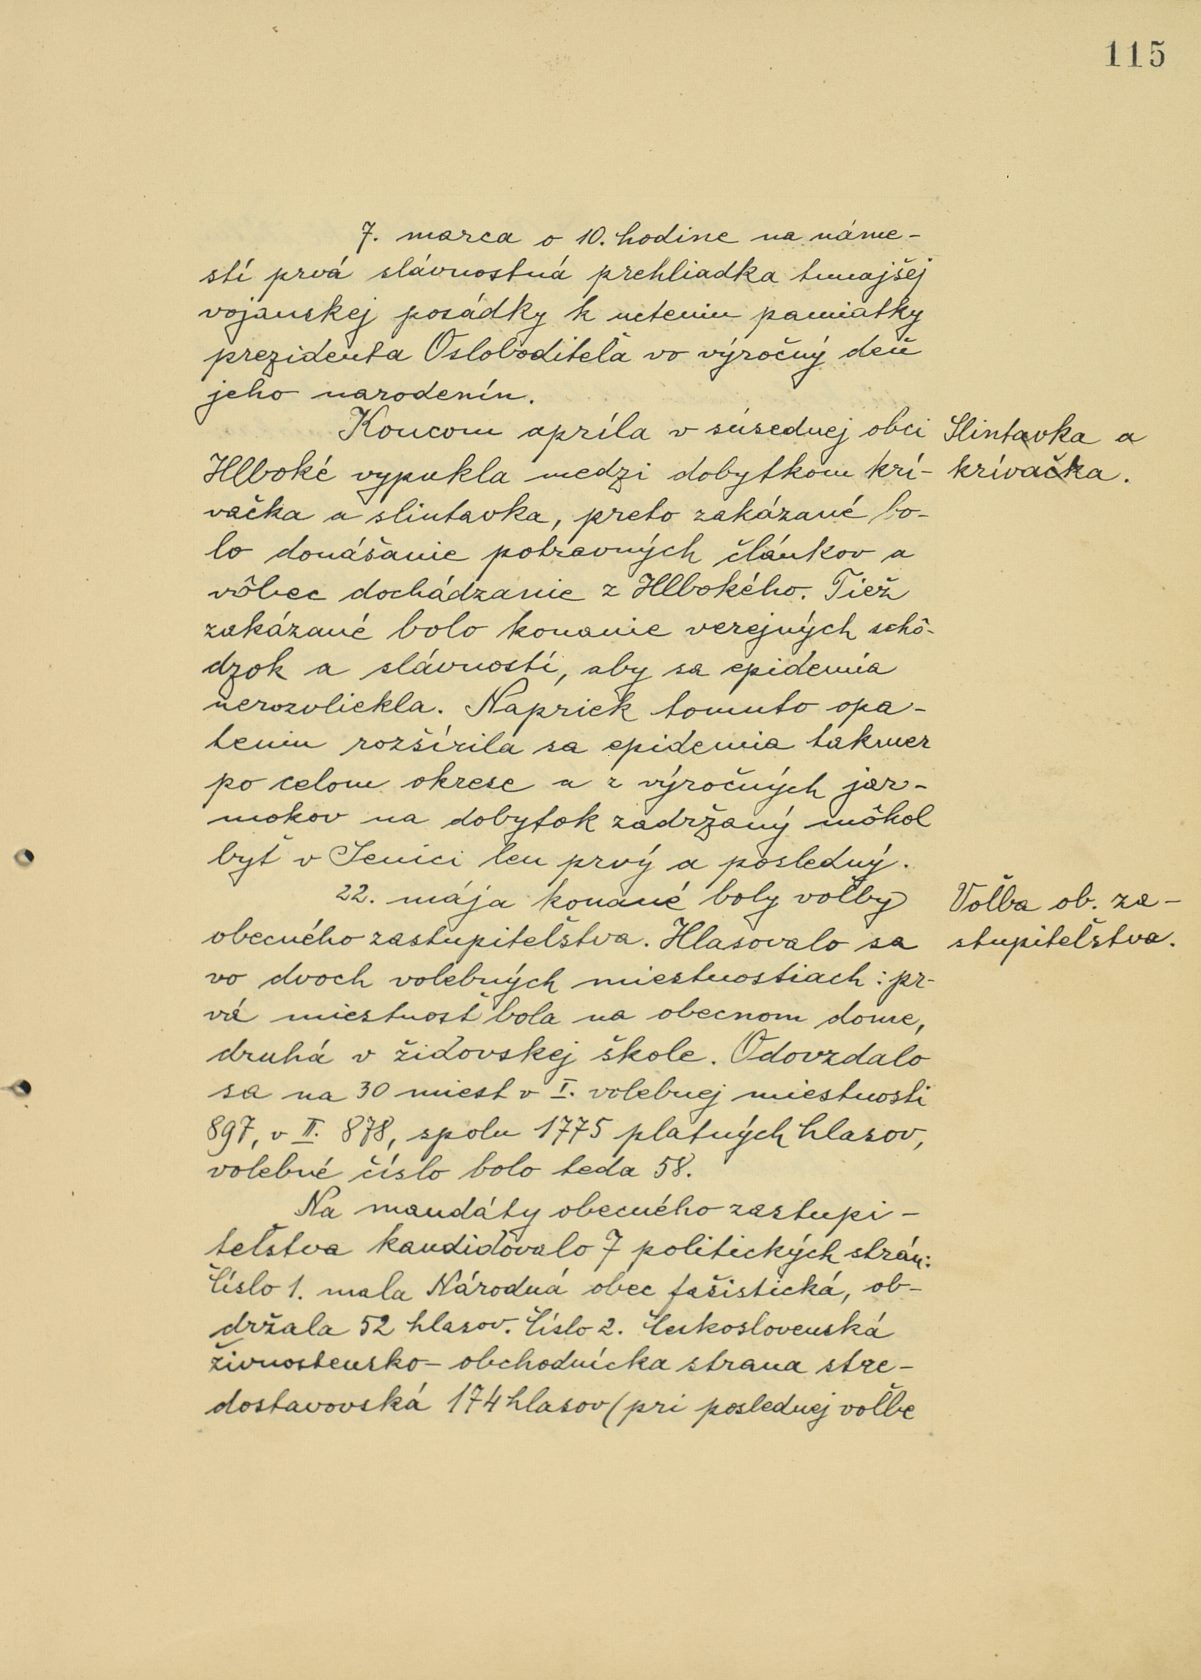 115
7. marca o 10. hodine na náme-
stí prvá slávnostná prehliadka tunajšej
vojanskej posádky k ucteniu pamiatky
prezidenta Osloboditeľa vo výročný deň
jeho narodenín.
Koncom apríla v súsednej obci
Slintavka a
Hlboké vypukla medzi dobytkom krí-
krívačka.
vačka a slintavka, preto zakázané bo-
lo donášanie potravných článkov a
vôbec dochádzanie z Hlbokého. Tiež
zakázané bolo konanie verejných schô-
dzok a slávností, aby sa epidemia
nerozvliekla. Napriek tomuto opa-
teniu rozšírila sa epidemia takmer
po celom okrese a z výročných jar-
mokov na dobytok zadržaný môhol
byť v Senici len prvý a posledný.
22. mája konané boly voľby
Voľba ob. za-
obecného zastupiteľstva. Hlasovalo sa
stupiteľstva.
vo dvoch volebných miestnostiach: pr-
vá miestnosť bola na obecnom dome,
druhá v židovskej škole. Odovzdalo
sa na 30 miest v I. volebnej miestnosti
897, v II. 878, spolu 1775 platných hlasov,
volebné číslo bolo teda 58.
Na mandáty obecného zastupi-
teľstva kandidovalo 7 politických strán:
Číslo 1. mala Národná obec fašistická, ob-
držala 52 hlasov. Číslo 2. Československá
živnostensko-obchodnícka strana stre-
dostavovská 174 hlasov (pri poslednej voľbe